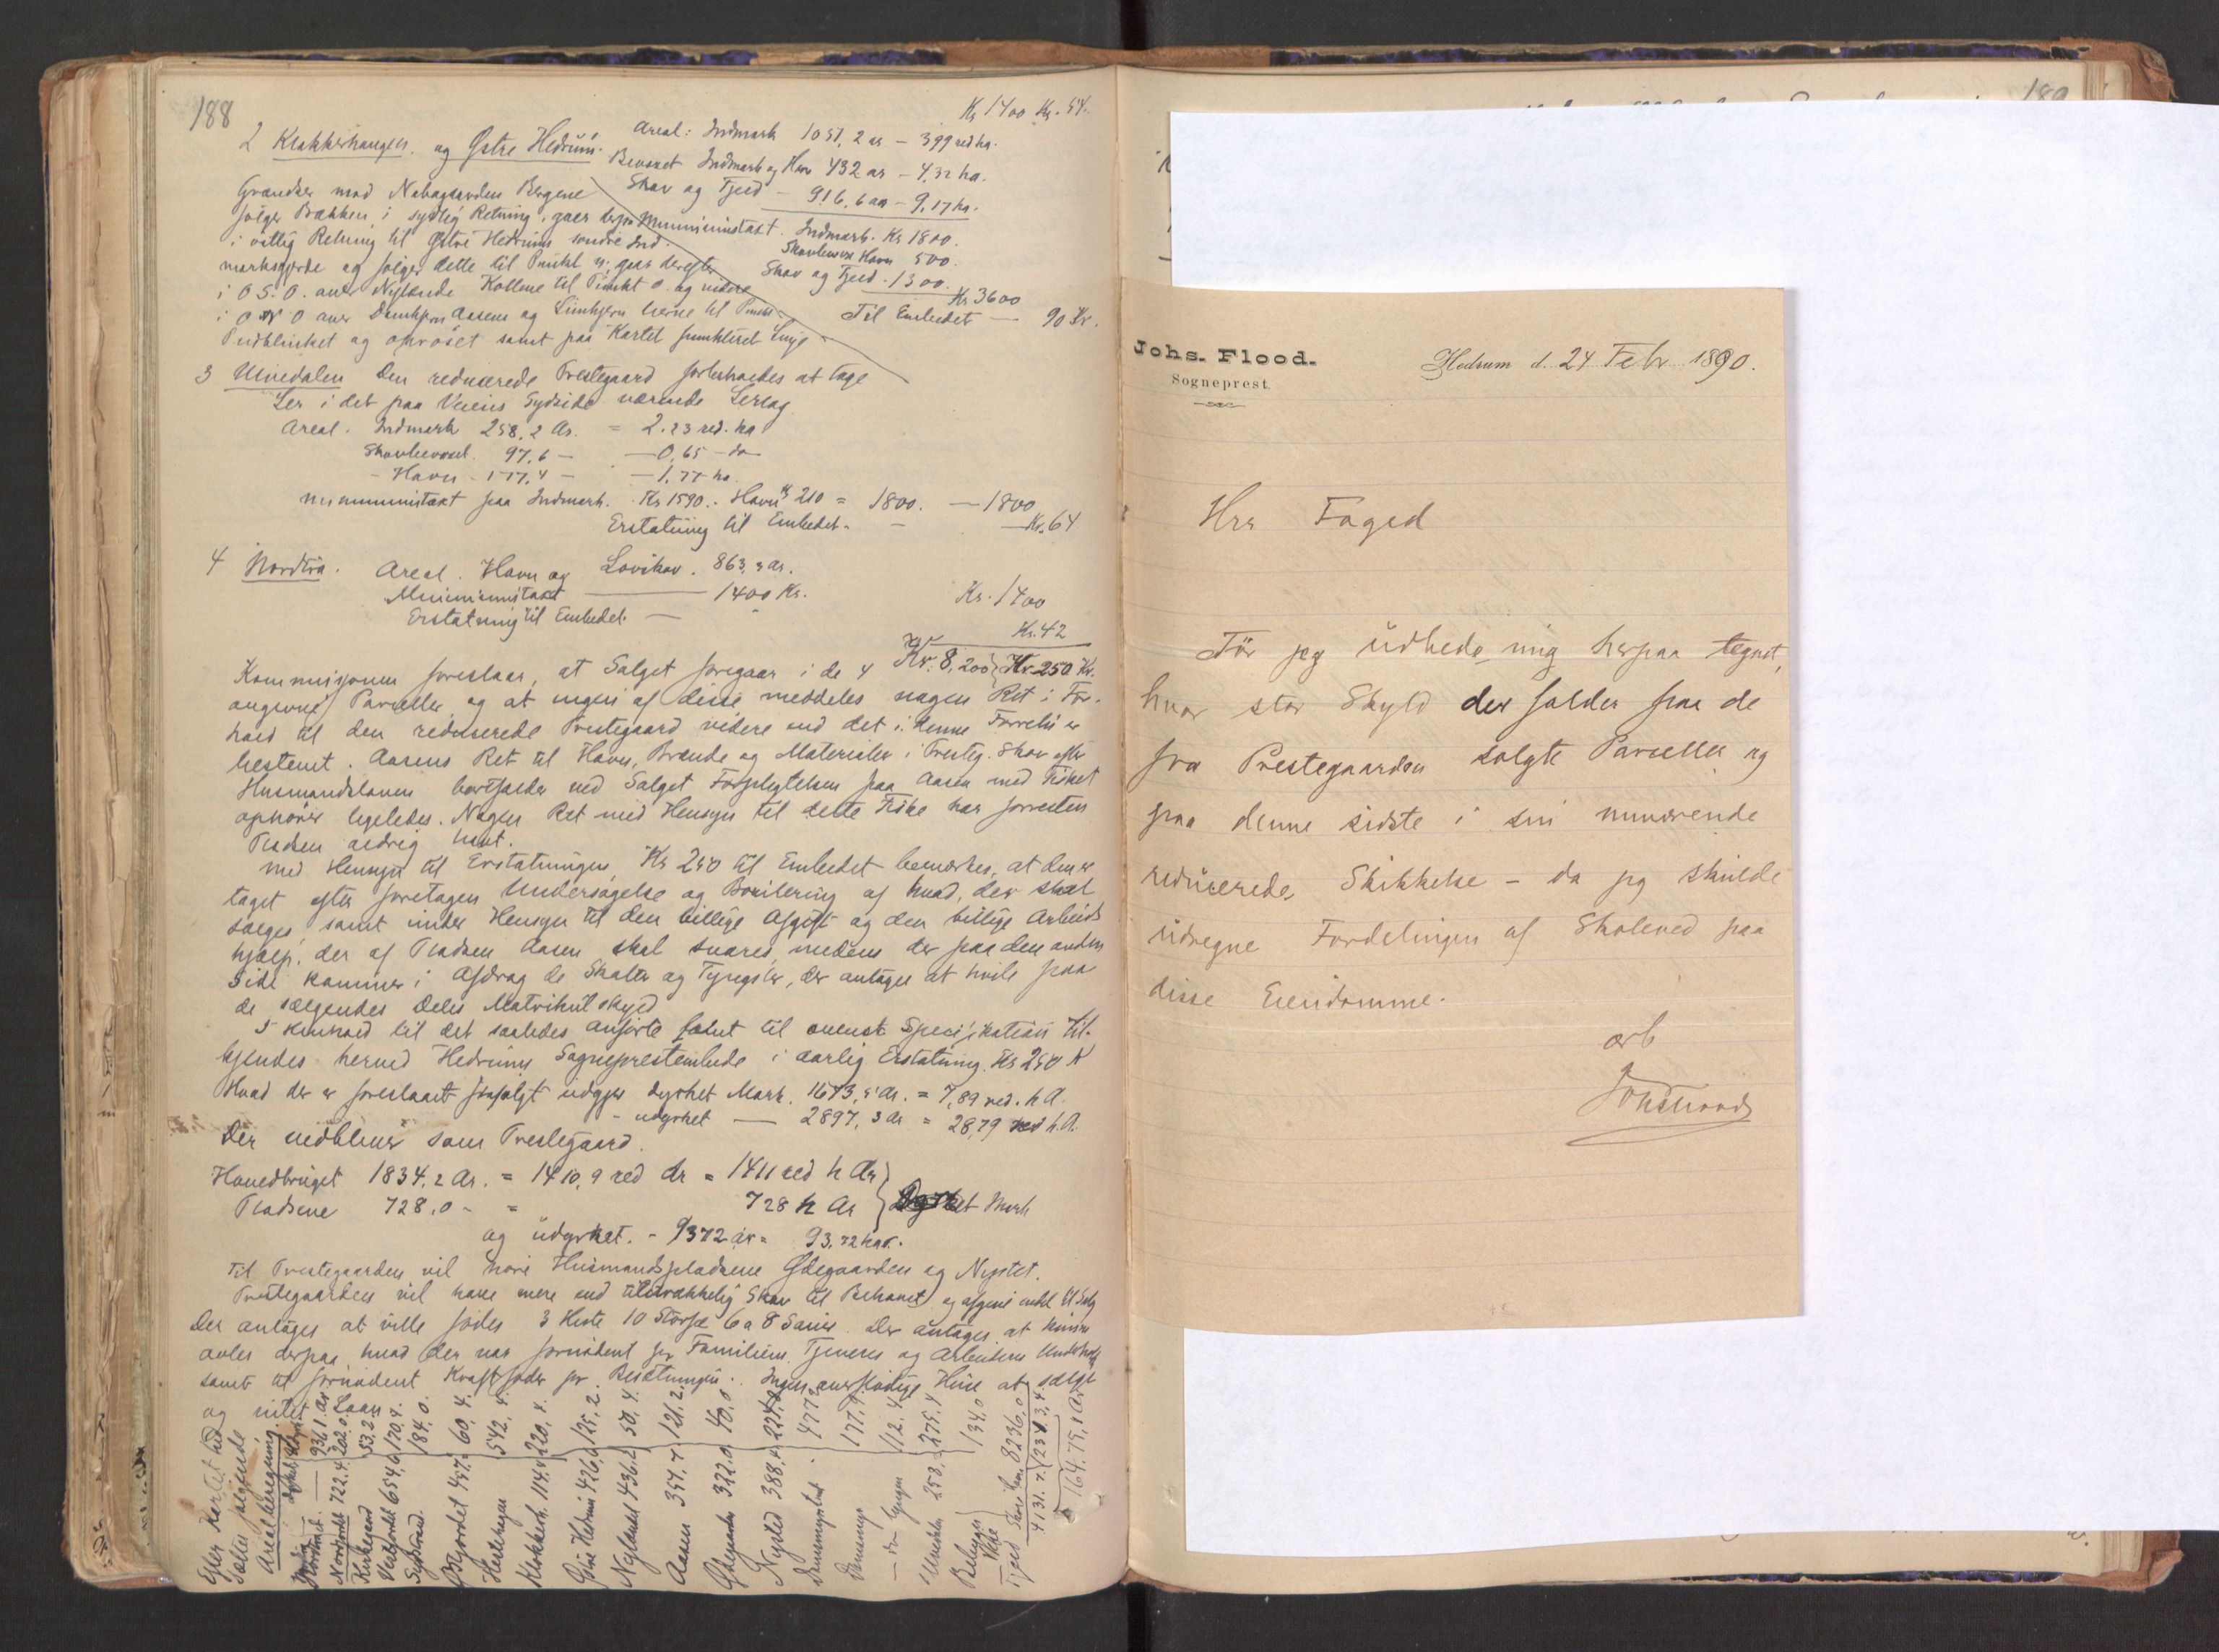 188
Kr 1400 Kr. 54.
2 Klokkerhaugen og Østre Hedrum.
Areal: Indmark 1051,2 ar — 399 red ha.
Bevoxet Indmark og Havn 432 ar — 4,32 ha.
Skov og Fjeld — 916,6 ar — 9,17 ha.
Grændser mod Nabogaarden Bergene
følger Bækken i sydlig Retning, gaar derfra
i østlig Retning til Østre Hedrums søndre Ind-
marksgjerde og følger dette til Punkt n; gaar derefter
i O S. O. over Nylænde Kollene til Punkt o og videre
i O N O over Damkjern Aasene og Limkjern herne til Punkt
Rødblinket og opröset samt paa Kartet punkteret Linje
Minimumstakt. Indmark. Kr 1800.
Skovbevox Havn 500.
Skov og Fjeld. 1300.
Kr 3600
Til Embedet — 90 Kr.
3 Unnedalen Den reducerede Prestegaard forbeholdes at tage
Ler i det paa Veiens Sydside værende Lertag
Areal. Indmark 258,2 Ar. = 2.23 red. ha
Skovbevoxet. 97,6 — — 0,65 — do
- Havn - 177,4 — — 1,77 ha
minimumstaxt paa Indmark. Kr 1590.- Havn Kr 210 = 1800. — 1800
Erstatning til Embedet — Kr. 64
4 Nordlia. Areal. Havn og Lovskov. 863,3 ar.
Minimumstaxt — 1400 Kr. Kr. 1400
Erstatning til Embedet. — Kr. 42
Kr. 8,200 Kr 250 Kr.
Kommisjonen foreslaar, at Salget foregaar i de 4
angivne Parceller og at ingen af disse meddeles nogen Ret i For-
hold til den reducerede Prestegaard videre end det i denne Forretn er
bestemt. Aasens Ret til Havn, Brænde og Materialer i Presteg. Skov efter
Husmandsloven bortfalder ved Salget. Forpligtelsen paa Aasen med Fisket
ophører ligeledes. Nogen Ret med Hensyn til dette Fiske har forresten
Pladsen aldrig havt.
Med Hensyn til Erstatningen, Kr 250 til Embedet bemærkes, at den er
taget efter foretagen Undersøgelse og Bonitering af hvad, der skal
sælges samt under Hensyn til den billige Afgift og den billige Arbeids
hjælp, der af Pladsen Aasen skal svares, medens der paa den anden
Side kommer i Afdrag de Skatter og Tyngsler, der antages at hvile paa
de sælgendes Deles Matrikul skyld
I Henhold til det saaledes anførte samt til ovenst. Specifikation til-
kjendes herved Hedrums Sogneprestembede i aarlig Erstatning Kr 250 K
Hvad der er foreslaaet frasolgt udgjør dyrket Mark. 1673,5 Ar. = 7,89 red. h A.
- udyrket — 2897,3 ar = 28,79 red h. A.
Der vedbliver som Prestegaard.
Hovedbruget 1834,2 Ar. = 1410,9 red Ar = 1411 red h Ar
Pladsene 728,0 - = 728 h Ar Dyrket Mark
og udyrket. - 9372 ar = 93,72 har.
Til Prestegaarden vil høre Husmandspladsene Ødegaarden og Nystet.
Prestegaarden vil have mere end tilstrækkelig Skov til Behovet og afgive endel til Salg
Der antages at ville fødes 3 Heste 10 Storfæ 6 a 8 Sauer. Der antages at kunne
avles derpaa, hvad der var fornødent for Familiens, Tjeneres og Arbeideres Underhold
samt til fornødent Kraftfoder for Besætningen. Ingen overflødige Huse at sælge
og intet Laan
Efter Kartet hid
sættes følgende
Arealberegning
Nordlia — 936,1 ar
Nordjordet 722,4 202,0
Kirkegaard 53,2
Vestjordet 654,6 170,4.
Sydstrand. 184,0.
Østjordet 457,2 60,4.
Hestehagen 542,4.
Klokkerh. 114,4 220,4.
Østre Hedrum 426,6 125,2.
Nylænd 436,2 50,4.
Aasen 357,7 121,2.
Ødegaarden 322,0 40,0
Nysted 388,4 224,8
Dammyrlund 477,2
Dammyr 177,9
— dto Gryen 112,4
Unnedalen 258,2 275,4
Bebygget Vest 134,0
Fjeld Skov Havn 8236,0
4131.7. 12343,4
16475,1 Ar
189
Johs. Flood.
Sogneprest.
Hedrum d. 24 Febr 1890.
Hrr Foged
Tör jeg üdbede mig herpaa tegnet,
hvor stor Skyld der falder paa de
fra Prestegaarden solgte Parceller og
paa denne sidste i sin nuværende
redücerede Skikkelse – da jeg skulde
üdregne Fordelingen af Skoleved paa
disse Eiendomme.
ærb
Johs Flood